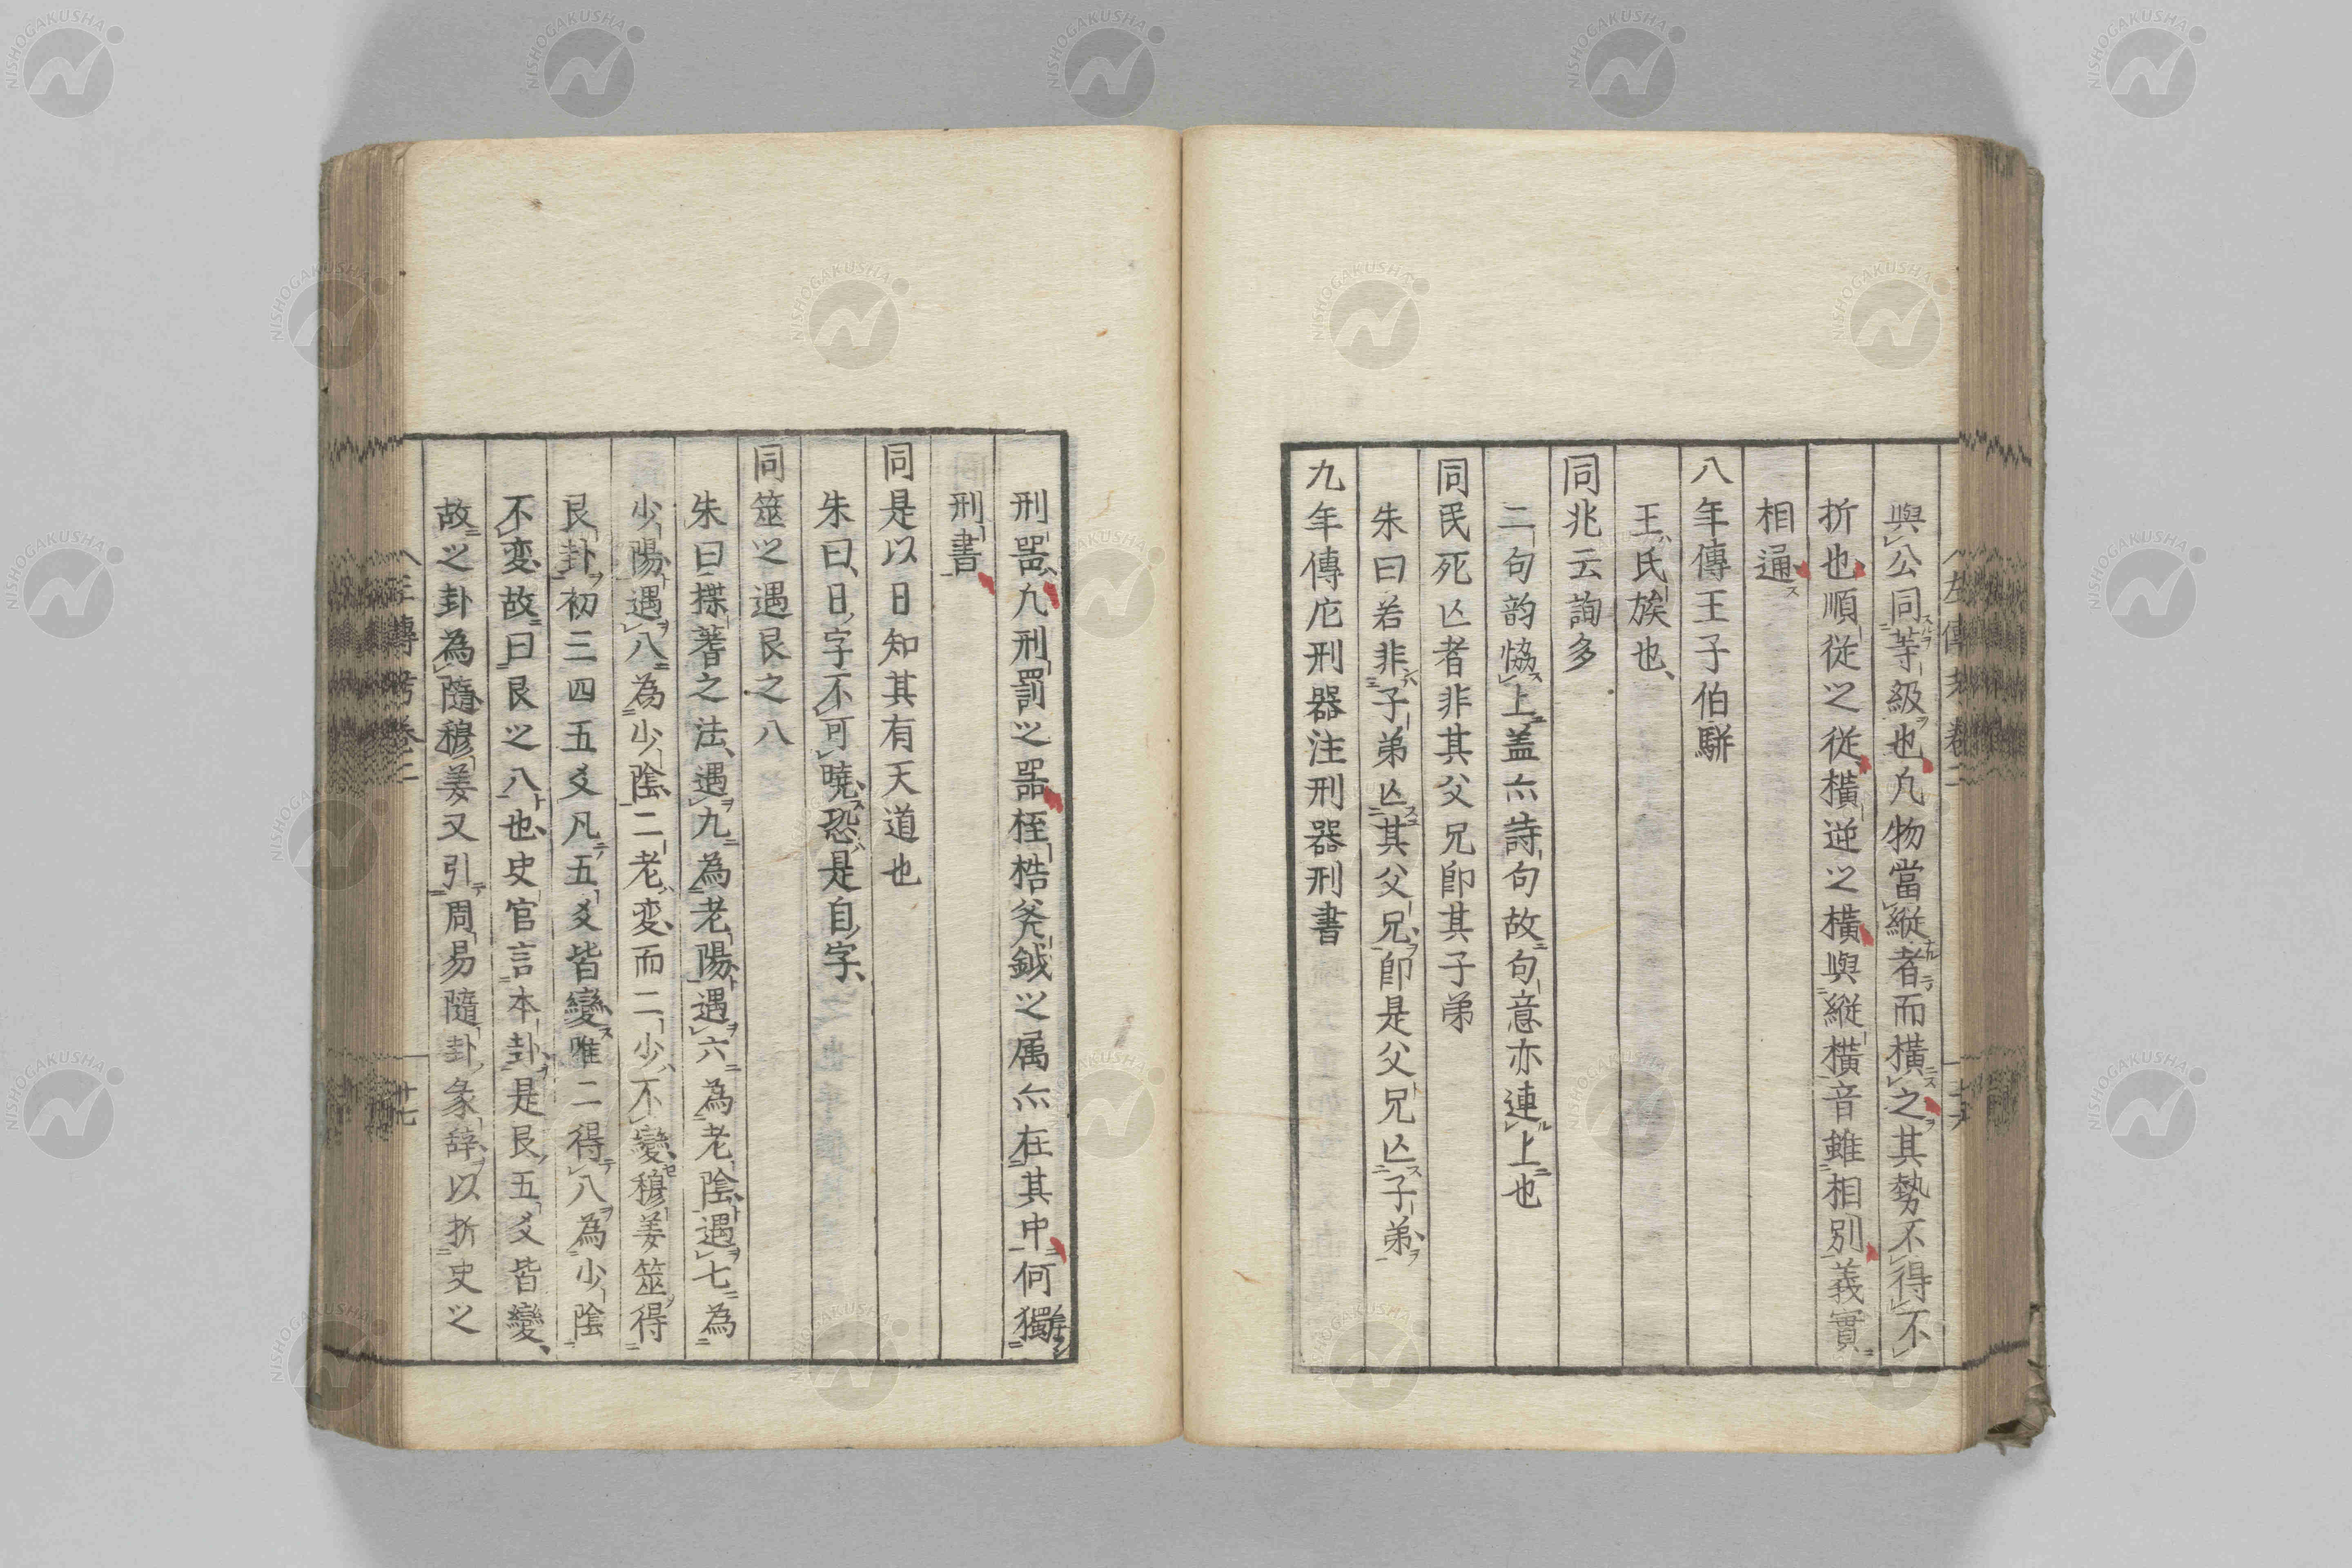 與公同等級也凡物當縱者而橫之其勢不得不
折也順従之従橫逆之橫與縱橫音雖相別義實
相通
八年傳王子伯駢
王氏族也
同兆云詢多
二句韵恊上盖亦詩句故句意亦連上也
同民死亾者非其父兄卽其子弟
朱曰若非子弟亾其父兄卽是父兄亾子弟
九年傳庀刑器注刑器刑書
刑噐九刑罰之噐桎梏斧鉞之属亦在其中何獨
刑書
同是以日知其有天道也
朱曰日字不可曉恐是自字
同筮之遇艮之八
朱曰揲蓍之法遇九為老陽遇六為老陰遇七為
少陽遇八為少陰二老変而二少不變穆姜筮得
艮卦初三四五爻凡五爻皆變唯二得八為少陰
不変故曰艮之八也史官言本卦是艮五爻皆變
故之卦為隨穆姜又引周易隨卦彖辞以折史之
NISHOGAKUSHA